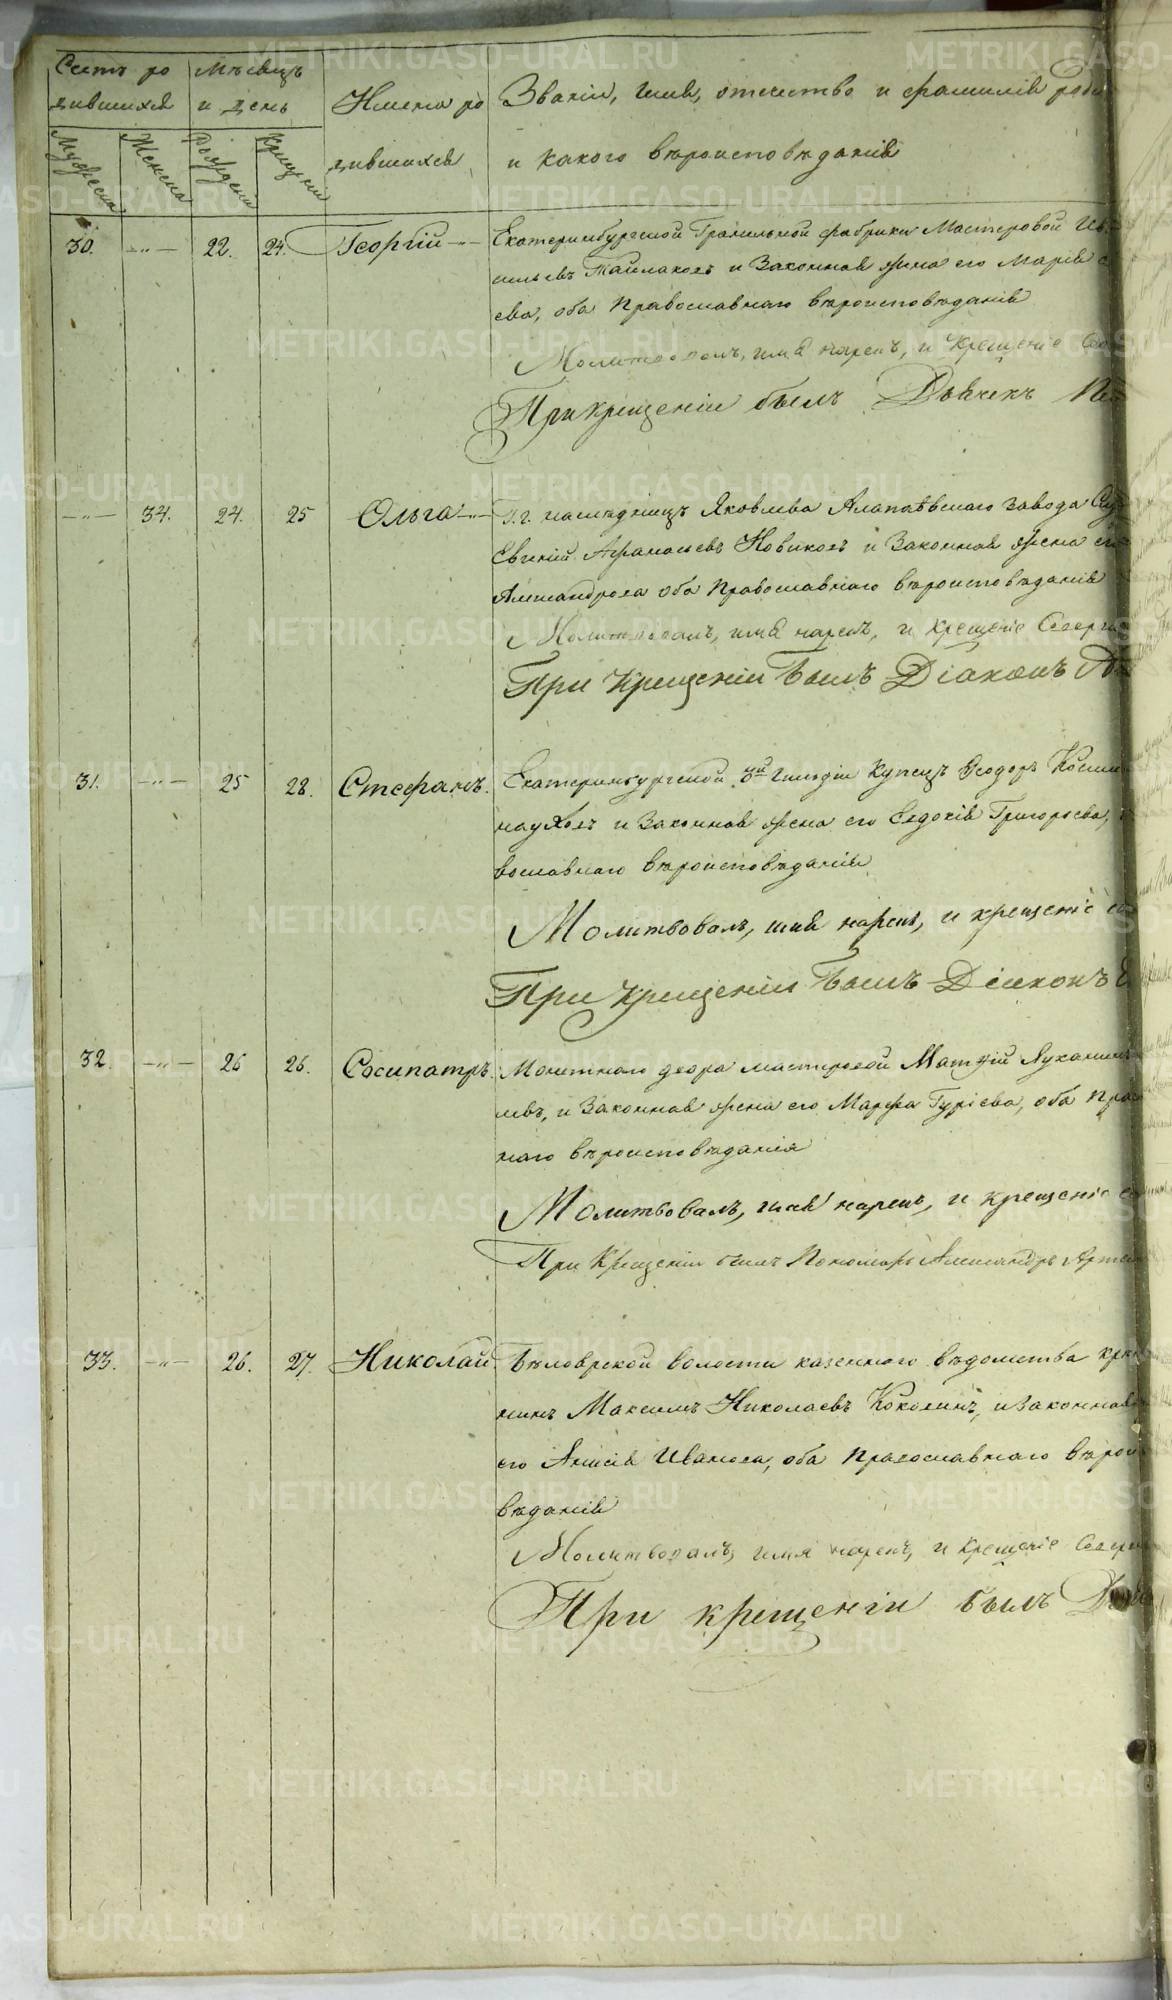 Счетъ ро
дившихся
Мѣсяцъ
и день
Имена ро
дившихся
Званіи, имя, отчество и фамилія роди
и какого вѣроисповѣданія
Мужеска
Женска
Рожденія
Крещенія
30. —„— 22. 24. Георгій Екатеринбургской Гранильной фабрики Мастеровой
и Законная жена его Марія
ева, оба Православнаго вѣроисповѣданія
Молитвовалъ, имя нарекъ, и крещеніе
При крещеніи былъ Дьячекъ
—„— 34. 24. 25 Ольга Г. г. наслѣдницъ Яковлева Алапаѣвскаго завода
Евгеній Афанасьевъ Новиковъ и Законная жена его
Александрова оба Православнаго вѣроисповѣданія
Молитвовалъ, имя нарекъ, и крещеніе
При крещеніи былъ Діаконъ
31. —„— 25 28. Стефанъ. Екатеринбургской 3й гильдіи Купецъ Ѳеодоръ
и Законная жена его Евдокія Григорьева,
вославнаго вѣроисповѣданія
Молитвовалъ, имя нарекъ, и крещеніе
При крещеніи былъ Діаконъ
32. —„— 26 26. Сосипатръ. Монетнаго двора мастеровой Матѳій
и Законная жена его Марфа Гуріева, оба Прав
наго вѣроисповѣданія
Молитвовалъ, имя нарекъ, и крещеніе
При Крещеніи былъ Пономарь Александръ
33. —„— 26. 27. Николай Бѣлоярской волости казеннаго вѣдомства
нинъ Максимъ Николаевъ и Законная
его Анисія Иванова, оба Православнаго вѣрои
вѣданія
Молитвовалъ, имя нарекъ, и крещеніе
При крещеніи былъ
METRIKI.GASO-URAL.RU